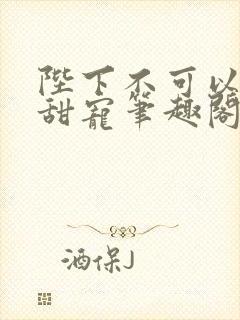 陛下不可以
甜寵筆趣閣
酒保J